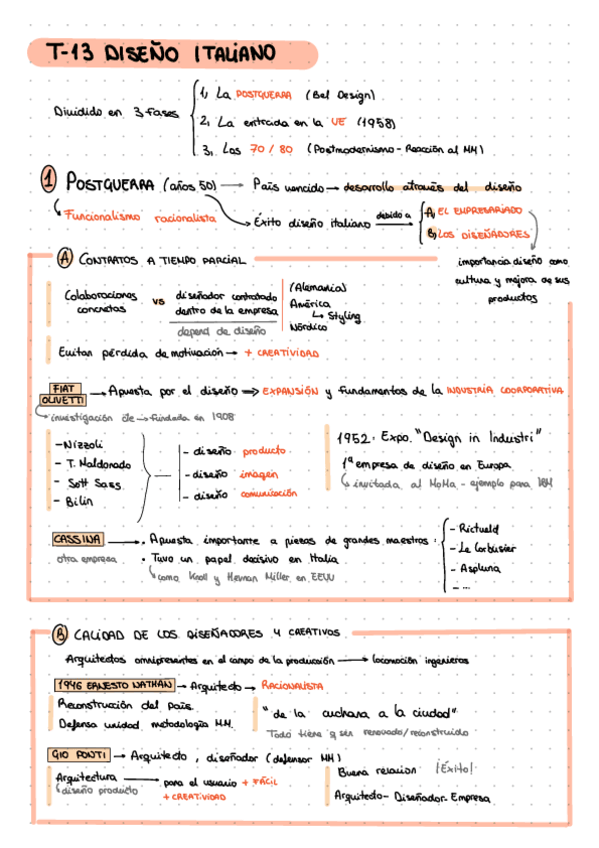 T-13 DISEÑO ITALIANO
Dividido en 3 fases
1, La POSTGUERRA (Bel Design)
2, La entrada en la UE (1958)
3, Los 70 / 80 (Postmodernismo - Reacción al MM)
1 POSTGUERRA (años 50) → País vencido → desarrollo através del diseño
Funcionalismo racionalista
Éxito diseño italiano debido a
A) EL EMPRESARIADO
B) LOS DISEÑADORES
importancia diseño como
cultura y mejora de sus
productos
A CONTRATOS A TIEMPO PARCIAL
Colaboraciones
concretas
vs
diseñador contratado
dentro de la empresa
depend de diseño
(Alemania)
América
↳ Styling
Nórdico
Evitan pérdida de motivación → + CREATIVIDAD
FIAT
OLIVETTI
→ Apuesta por el diseño => EXPANSIÓN y fundamentos de la INDUSTRIA COORPORATIVA
investigación de → fundada en 1908
- Nizzoli
- T. Maldonado
- Sott Sass
- Bilin
- diseño producto
- diseño imagen
- diseño comunicación
1952: Expo. "Design in Industri"
1ª empresa de diseño en Europa
↳ invitada al MoMa - ejemplo para IBM
CASSINA → • Apuesta importante a piezas de grandes maestros:
otra empresa
• Tuvo un papel decisivo en Italia
↳ como Knoll y Herman Miller en EEUU
- Rictueld
- Le Corbusier
- Aspluna
- ...
B CALIDAD DE LOS DISEÑADORES Y CREATIVOS
Arquitectos omnipresentes en el campo de la producción → locomoción ingenieros
1946 ERNESTO NATHAN → Arquitecto → RACIONALISTA
Reconstrucción del país.
Defensa unidad metodología MM.
"de la cuchara a la ciudad"
Todo tiene q ser renovado/reconstruido
GIO PONTI → Arquitecto, diseñador (defensor MM)
Arquitectura → para el usuario + FÁCIL
↳ diseño producto
+ CREATIVIDAD
Buena relación ¡Éxito!
Arquitecto - Diseñador - Empresa